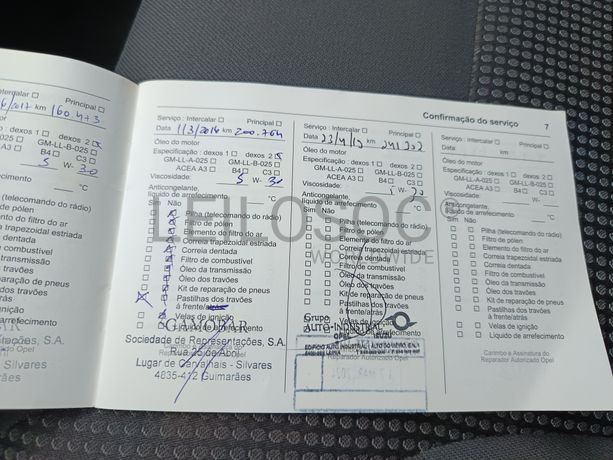 Confirmação do serviço 7
Intercalar Principal
/2017 km 160.4+3
dexos 1 dexos 2
A-025 GM-LL-B-025
A3 B4 C3
5 W- 30
°C
(telecomando do rádio)
de pólen
do filtro do ar
trapezoidal estriada
dentada
combustível
transmissão
dos travões
reparação de pneus
dos travões
/atrás
de ignição
arrefecimento
Serviço : Intercalar Principal
Data 11/3/2018 km 200.764
Óleo do motor
Especificação : dexos 1 dexos 2
GM-LL-A-025 GM-LL-B-025
ACEA A3 B4 C3
Viscosidade: 5 W- 30
Anticongelante,
líquido de arrefecimento °C
Sim Não
Pilha (telecomando do rádio)
Filtro de pólen
Elemento do filtro do ar
Correia trapezoidal estriada
Correia dentada
Filtro de combustível
Óleo da transmissão
Óleo dos travões
Kit de reparação de pneus
Pastilhas dos travões
à frente/atrás
Velas de ignição
Líquido de arrefecimento
GAMOBAR
Sociedade de Representações, S.A.
Rua 25 de Abril
Lugar de Carvalhais - Silvares
4835-412 Guimarães
Serviço : Intercalar Principal
Data km
Óleo do motor
Especificação : dexos 1 dexos 2
GM-LL-A-025 GM-LL-B-025
ACEA A3 B4 C3
Viscosidade: W-
Anticongelante,
líquido de arrefecimento °C
Sim Não
Pilha (telecomando do rádio)
Filtro de pólen
Elemento do filtro do ar
Correia trapezoidal estriada
Correia dentada
Filtro de combustível
Óleo da transmissão
Óleo dos travões
Kit de reparação de pneus
Pastilhas dos travões
à frente/atrás
Velas de ignição
Líquido de arrefecimento
Grupo
AUTO-INDUSTRIAL
OPEL ISUZU
Reparador Autorizado Opel
Serviço : Intercalar Principal
Data km
Óleo do motor
Especificação : dexos 1 dexos 2
GM-LL-A-025 GM-LL-B-025
ACEA A3 B4 C3
Viscosidade: W-
Anticongelante,
líquido de arrefecimento °C
Sim Não
Pilha (telecomando do rádio)
Filtro de pólen
Elemento do filtro do ar
Correia trapezoidal estriada
Correia dentada
Filtro de combustível
Óleo da transmissão
Óleo dos travões
Kit de reparação de pneus
Pastilhas dos travões
à frente/atrás
Velas de ignição
Líquido de arrefecimento
Carimbo e Assinatura do
Reparador Autorizado Opel
LEILOSOC®
WORLDWIDE